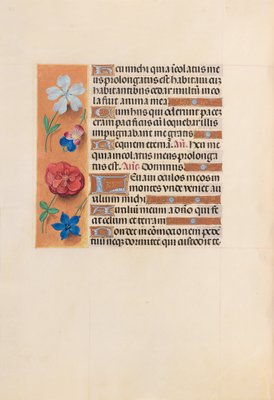 Heu michi quia ĩcolatus me
us prolongatus est habitaui cuz
habitantibus cedar multũ in co
la fuit anima mea
Cum hiis qui oderunt pacẽ
eram pacificus cũ loquebar illis
impugnabant me gratis
Requiem eternã. Añ. Heu me
quia incolatus meus prolonga
tus est. Añ. Dominus.
Leuaui oculos meos in
montes vnde veniet au
xilium michi
Auxiliũ meum a dño qui fe
cit celum et terram
Non det in cõmotionem pedẽ
tuũ neqz dormitet qui custodit te